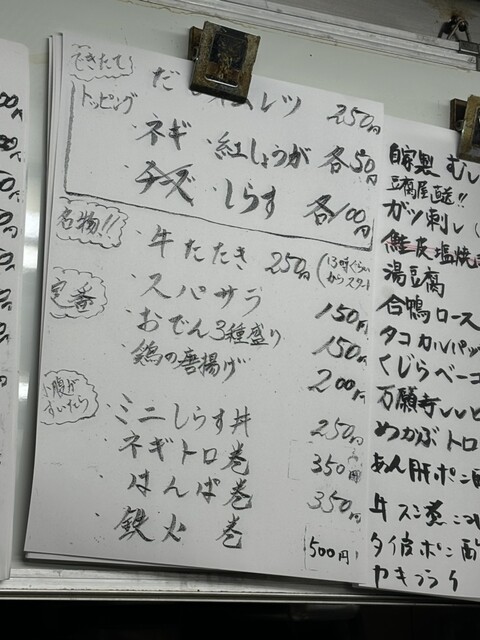 できたて!
だ レツ 250円
トッピング
・ネギ ・紅しょうが 各50円
・チーズ ・しらす 各100円
名物!!
・牛たたき 250円 (13時ぐらいからスタート
定番
・スパサラ 150円
・おでん3種盛り 150円
・鶏の唐揚げ 200円
小腹がすいたら
・ミニしらす丼 250円
・ネギトロ巻 350円
・はんぱ巻 350円
・鉄火巻 500円!
自家製 むし
豆腐屋直送!!
ガツ刺し(
鮭皮塩焼き
湯豆腐
合鴨ロース
タコカルパッ
くじらベーコ
万願寺
めかぶトロ
あん肝ポン酢
牛スジ煮
タイ皮ポン酢